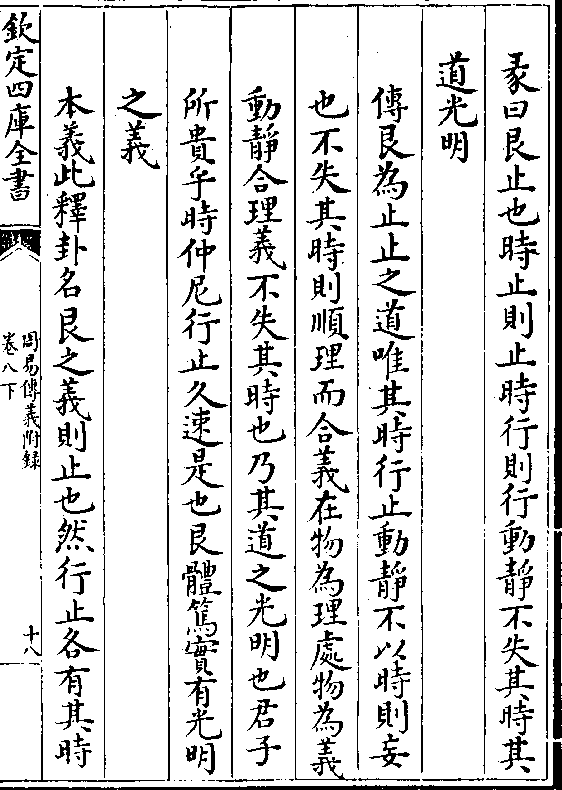 彖曰艮止也時止則止時行則行動靜不失其時其
道光明
傳艮為止止之道唯其時行止動靜不以時則妄
也不失其時則順理而合義在物為理處物為義
動靜合理義不失其時也乃其道之光明也君子
所貴乎時仲尼行止久速是也艮體篤實有光明
之義
本義此釋卦名艮之義則止也然行止各有其時
欽定四庫全書
周易傳義附錄
卷八下
十八